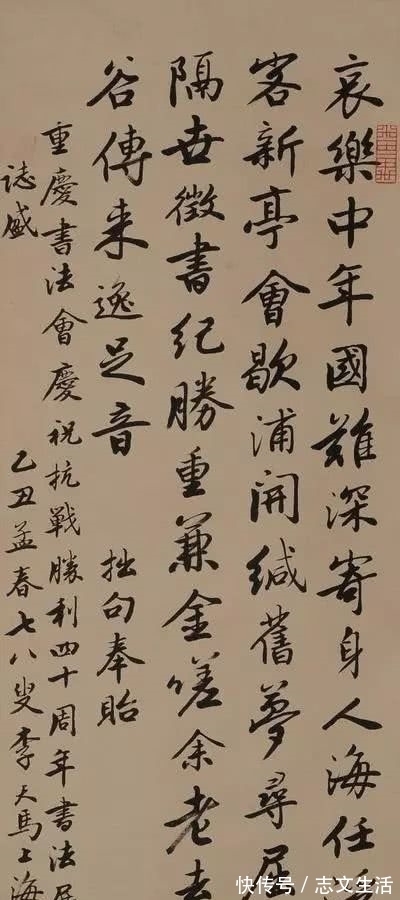 哀樂中年國難深寄身人海任
客新亭會歇浦開緘舊夢尋
隔世徵書紀勝重兼金嗟余老去
谷傳来逸足音 拙句奉貽
重慶書法會慶祝抗戰勝利四十周年書法展
誌盛 乙丑孟春七八叟李天馬上海
快传号/志文生活